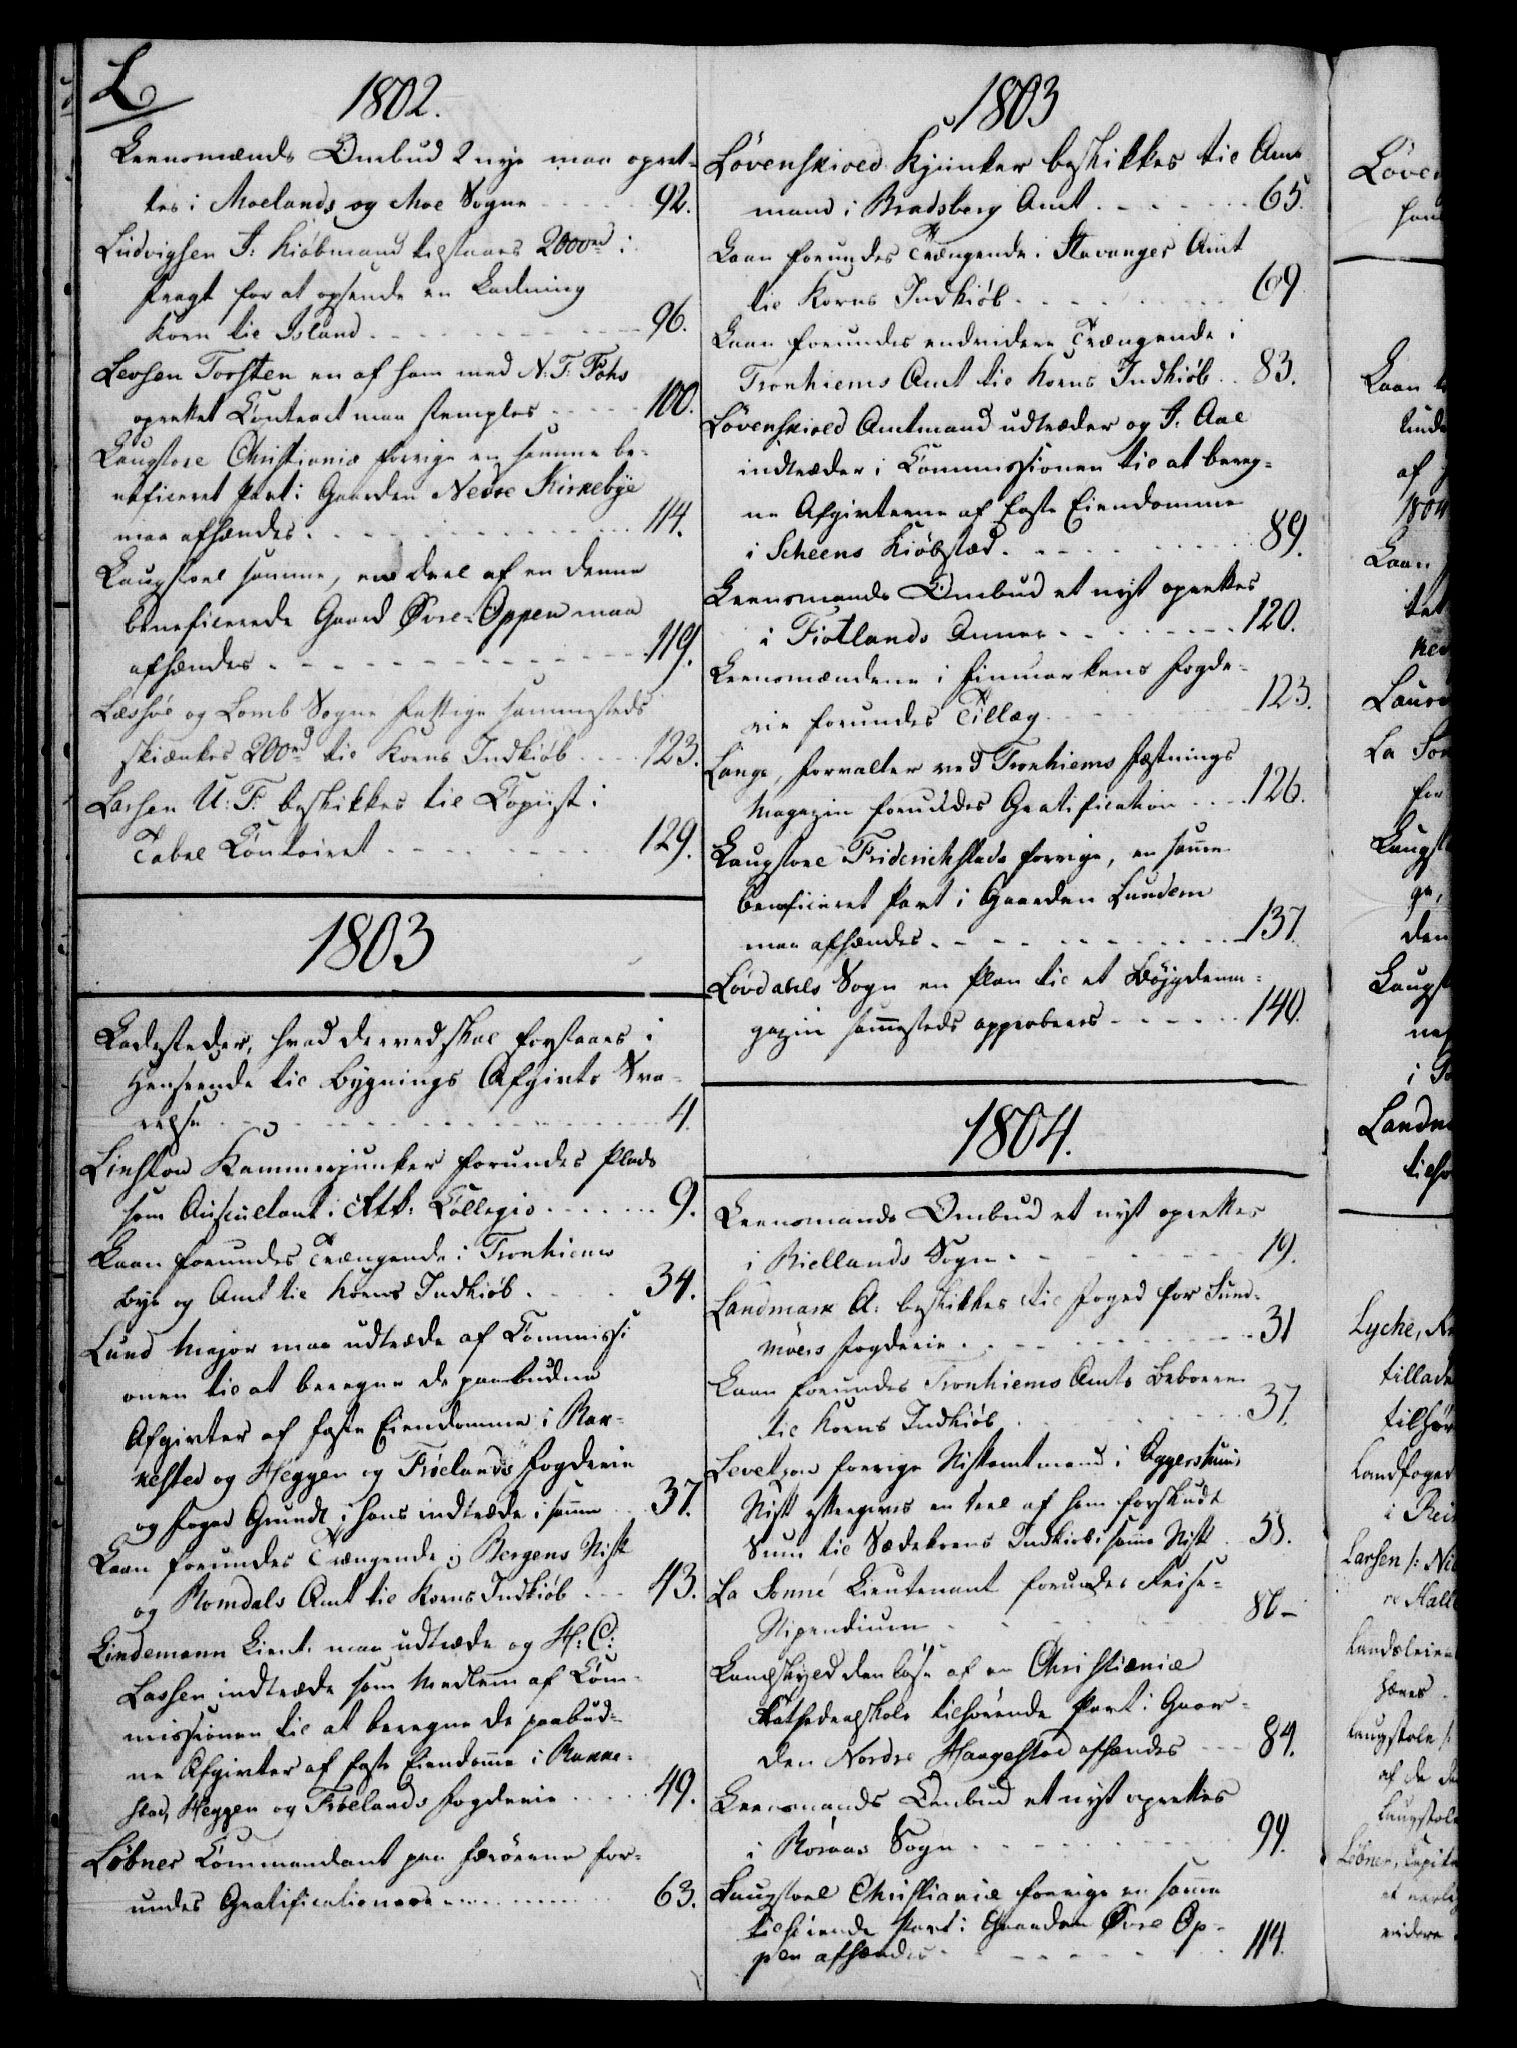 L
1802.
Lensmænds Ombud 2 nye maa opret-
tes i Moelands og Moe Sogne 92.
Ludvigsen I: Kiøbmand tilstaaes 2000rd i
fragt for at opsende en Ladning
Korn til Island 96.
Levsen Torsten en af ham med N. T. Fohs
oprettet Contract maa stemples 100.
Laugstoel Christiania forrige en samme be-
neficeret Part i Gaarden Nedre Kirkebye
maa afhændes 114.
Laugstoel samme, en deel af en denne
beneficerede Gaard Øvre-Oppen maa
afhændes 119.
Læssøe og Lomb Sogne fattige sammesteds
skiænkes 200rd til Korns Indkiøb 123.
Larsen U: F: beskikkes til Copiist i
Tabel Contoiret 129.
1803
Ladesteder, hvad derved skal forstaaes i
Henseende til Bygnings Afgivts Sva-
relse 4.
Linstow Kammerjunker forundes Plads
som Auscultant i Rtk: Collegio 9.
Laan forundes Trængende i Tronhiems
Bye og Amt til Korns Indkiøb 34.
Lund Major maa udtræde af Commissi
onen til at beregne de paabudne
Afgivter af faste Eiendomme i Rak-
kested og Heggen og Frølands Fogderie
og Foged Grundt i hans indtræde i samme 37.
Laan forundes Trængende i Bergens Stift
og Romdals Amt til Korns Indkiøb 43.
Lindemann Lieut. maa udtræde og H: C:
Lassen indtræde som Medlem af Com-
missionen til at beregne de paabud-
ne Afgivter af faste Eiendomme i Rakke-
stad, Heggen og Frølands Fogderie 49.
Løbner Commandant paa Færøerne for-
undes Gratificationer 63.
1803
Løvenskiold Kjunker beskikkes til Amt
mand i Bradsberg Amt 65.
Laan forundes Trængende i Stavanger Amt
til Korns Indkiøb 69
Laan forundes endvidere Trængende i
Tronhiems Amt til Korns Indkiøb 83.
Løvenskiold Amtmand udtræder og I. Aal
indtræder i Commissionen til at bereg-
ne Afgivterne af faste Eiendomme
i Scheens Kiøbstæd 89.
Lensmands Ombud et nyt oprettes
i Fiotlands Annex 120.
Lensmændene i Finmarkens Fogde-
rie forundes Tillæg 123.
Lange, forvalter ved Tronhiems Fæstnings
Magazin forundes Gratification 126.
Laugstoel Friderichstads forrige, en samme
beneficeret Part i Gaarden Lundem
maa afhændes 137.
Løvdahls Sogn en Plan til et Bøygdema-
gazin sammesteds approberes 140.
1804.
Lensmands Ombud et nyt oprettes
i Biellands Sogn 19.
Landmark A: beskikkes til Foged for Sund-
møers Fogderie 31
Laan forundes Tronhiems Amts Beboere
til Korns Indkiøb 37.
Levetzow forrige Stiftamtmand i Aggershuus
Stift eftergives en deel af ham forskudt
Sum til Sædekorns Indkiøb i samme Stift 55.
La Sonné Lieutenant forundes Reise-
Stipendium 80-
Landskyld den løse af en Christiania
Kathedralskole tilhørende Part i Gaar-
den Nordre Haugestad afhændes 84.
Lensmands Ombud et nyt oprettes
i Røraas Sogn 99.
Laugstoel Christiania forrige en samme
tilhørende Part i Gaarden Øvre Op-
pen afhændes 114.
Løven
Laan
unde
af
1804
Laan
tet
Laure
La Son
for
Laugst
ge,
den
Laugst
i
Landm
tilho
Lyche,
tillade
tilhør
Landfoged
i Rei
Larsen
Landsleien
hæves
Laugstole
af de
Laugstole
Løbner, Capit
videre